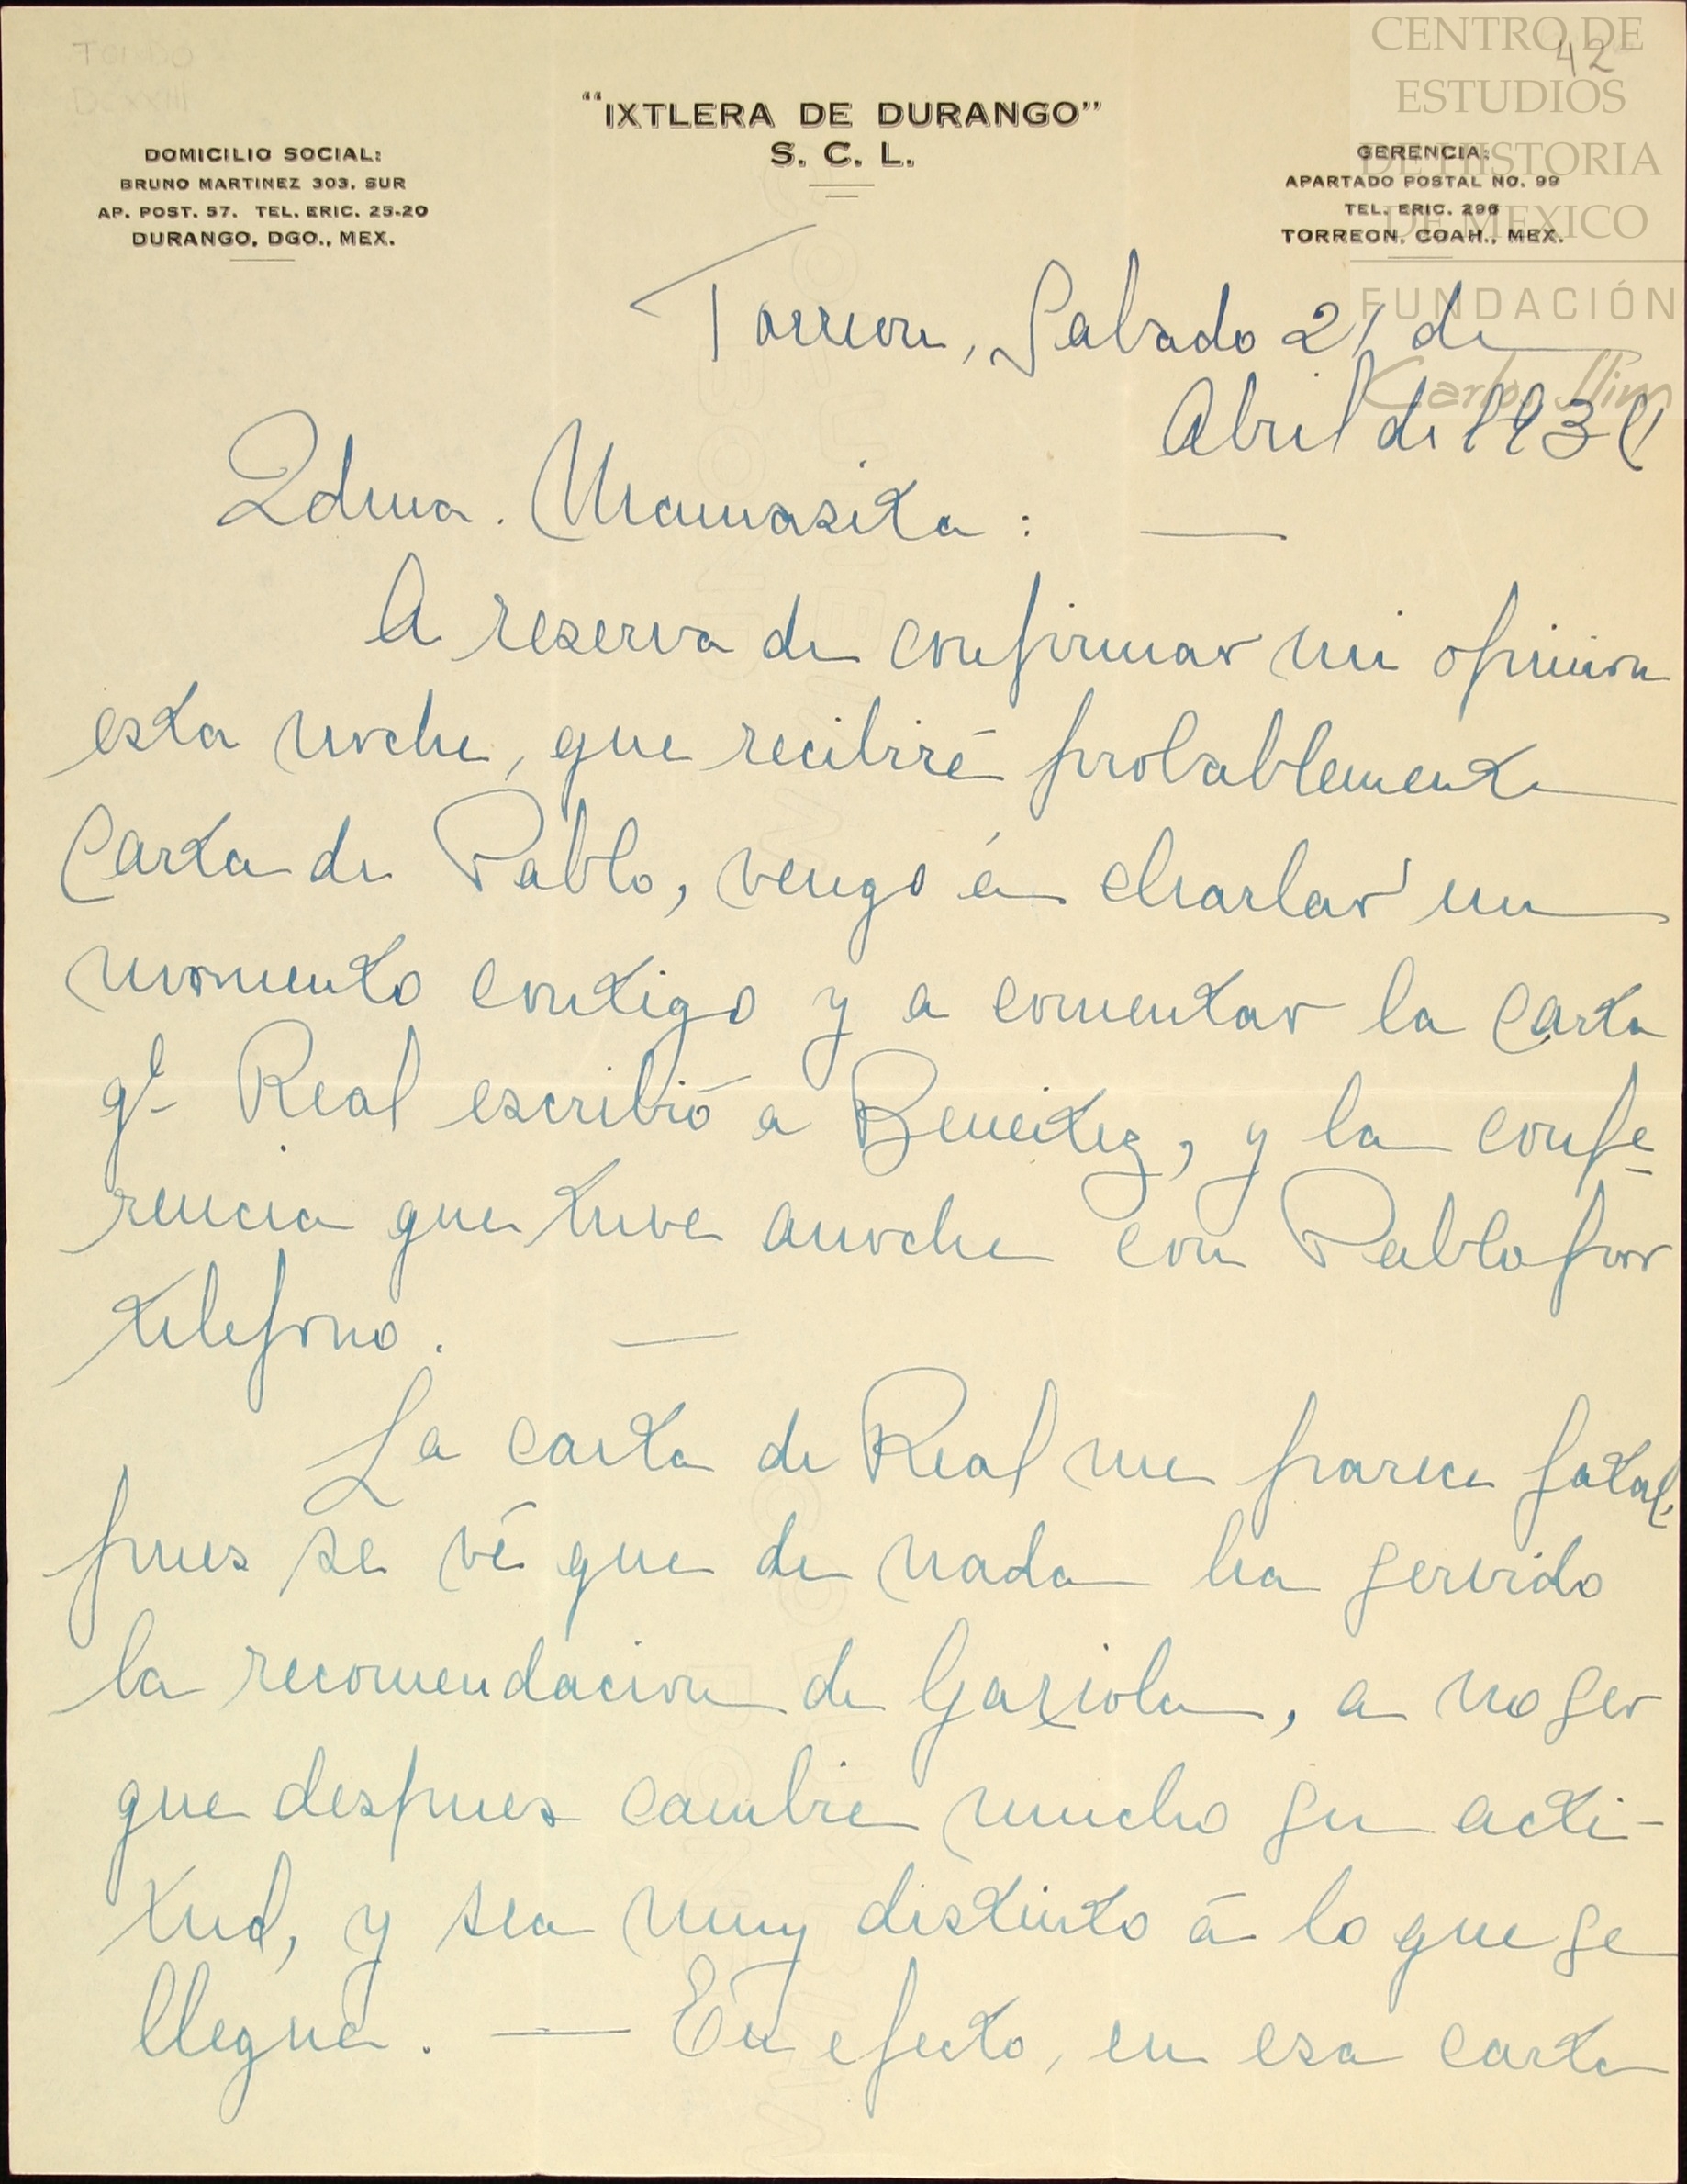 FONDO
DCXXIII
42
CENTRO DE
ESTUDIOS
DE HISTORIA
DE MEXICO
FUNDACIÓN
Carlos Slim
"IXTLERA DE DURANGO"
S. C. L.
DOMICILIO SOCIAL:
BRUNO MARTINEZ 303. SUR
AP. POST. 57. TEL. ERIC. 25-20
DURANGO, DGO., MEX.
GERENCIA:
APARTADO POSTAL NO. 99
TEL. ERIC. 296
TORREON, COAH., MEX.
Torreon, Sabado 21 de
Abril de 1934
Qdma. Mamasita:
A reserva de confirmar mi opinion
esta noche, que recibiré probablemente
carta de Pablo, vengo á charlar un
momento contigo y a comentar la carta
qe Real escribió a Beneitez, y la confe
rencia que tuve anoche con Pablo por
telefono.
La carta de Real me parece fatal,
pues se vé que de nada ha servido
la recomendacion de Gaxiola, a no ser
que despues cambie mucho su acti-
tud, y sea muy distinto á lo que se
llegue. — En efecto, en esa carta